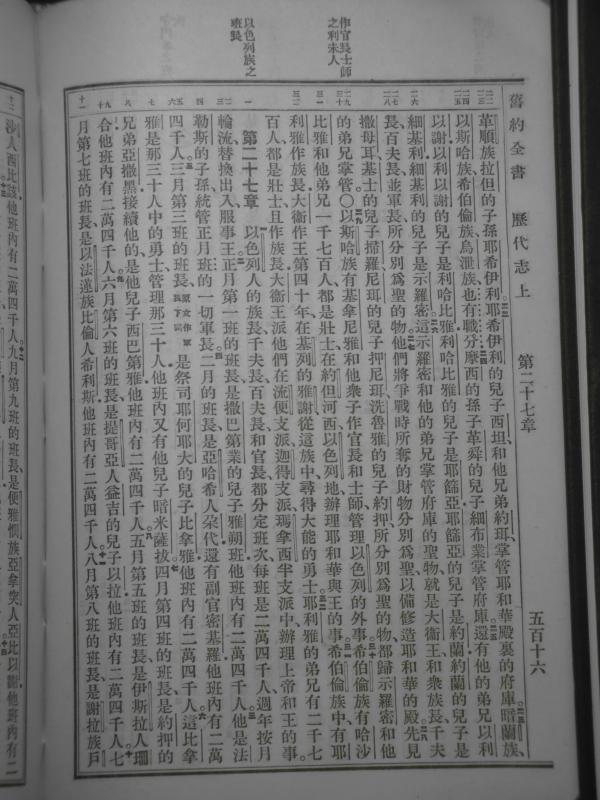 舊約全書　歷代志上　第二十七章　五百十六
作官長士師
之利未人
以色列族之
班長
革順族拉但的子孫耶希伊利耶希伊利的兒子西坦和他兄弟約珥掌管耶和華殿裏的府庫暗蘭族
以斯哈族希伯倫族烏泄族也有職分摩西的孫子革舜的兒子細布業掌管府庫還有他的弟兄以利
以謝以利以謝的兒子是利哈比雅利哈比雅的兒子是耶篩亞耶篩亞的兒子是約蘭約蘭的兒子是
細基利細基利的兒子是示羅密這示羅密和他的弟兄掌管府庫的聖物就是大衛王和衆族長千夫
長百夫長並軍長所分別爲聖的物他們將爭戰時所奪的財物分別爲聖以備修造耶和華的殿先見
撒母耳基士的兒子掃羅尼珥的兒子押尼珥洗魯雅的兒子約押所分別爲聖的物都歸示羅密和他
的弟兄掌管〇以斯哈族有基拿尼雅和他衆子作官長和士師管理以色列的外事希伯倫族有哈沙
比雅和他弟兄一千七百人都是壯士在約但河西以色列地辦理耶和華與王的事希伯倫族中有耶
利雅作族長大衛作王第四十年在基列的雅謝從這族中尋得大能的勇士耶利雅的弟兄有二千七
百人都是壯士且作族長大衛王派他們在流便支派迦得支派瑪拿西半支派中辦理上帝和王的事
第二十七章　以色列人的族長千夫長百夫長和官長都分定班次每班是二萬四千人週年按月
輪流替換出入服事王正月第一班的班長是撒巴第業的兒子雅朔班他班內有二萬四千人他是法
勒斯的子孫統管正月班的一切軍長二月的班長是亞哈希人朶代還有副官密基羅他班內有二萬
四千人三月第三班的班長原文作軍長下同是祭司耶何耶大的兒子比拿雅他班內有二萬四千人這比拿
雅是那三十人中的勇士管理那三十人他班內又有他兒子暗米薩拔四月第四班的班長是約押的
兄弟亞撒黑接續他的是他兒子西巴第雅他班內有二萬四千人五月第五班的班長是伊斯拉人珊
合他班內有二萬四千人六月第六班的班長是提哥亞人益吉的兒子以拉他班內有二萬四千人七
月第七班的班長是以法蓮族比倫人希利斯他班內有二萬四千人八月第八班的班長是謝拉族戶
沙人西比該他班內有二萬四千人九月第九班的班長是便雅憫族亞拿突人亞比以謝他班內有二